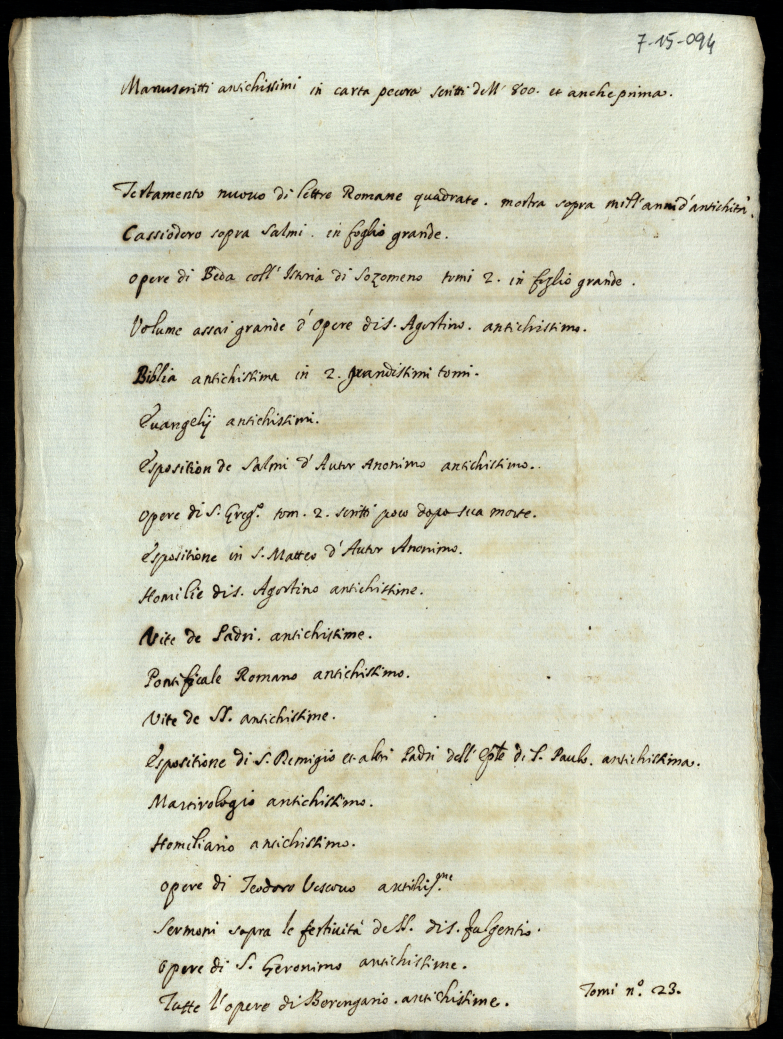 7-15-094
Manuscritti antichissimi in carta pecora scritti dell' 800. et anche prima.
Testamento nuovo di lettre Romane quadrate. mostra sopra mill'anni d'antichità.
Cassiodoro sopra Salmi. in foglio grande.
Opere di Beda coll' Istoria di Sozomeno tomi 2. in foglio grande.
Volume assai grande d'Opere di S. Agostino. antichissimo.
Biblia antichissima in 2. grandissimi tomi.
Evangelij antichissimi.
Esposition de Salmi d'Autor Anonimo antichissimo.
Opere di S. Greg.º tom. 2. scritti poco dopo sua morte.
Espositione in S. Matteo d'Autor Anonimo.
Homilie di S. Agostino antichissime.
Vite de Padri. antichissime.
Pontificale Romano antichissimo.
Vite de SS. antichissime.
Espositione di S. Remigio et altri Padri dell' Eple di S. Paulo. antichissima.
Martirologio antichissimo.
Homiliario antichissimo.
Opere di Teodoro Vescovo antichis.me
Sermoni sopra le festività de SS. di S. Fulgentio.
Opere di S. Geronimo antichissime.
Tutte l'opere di Berengario. antichissime. Tomi nº. 23.